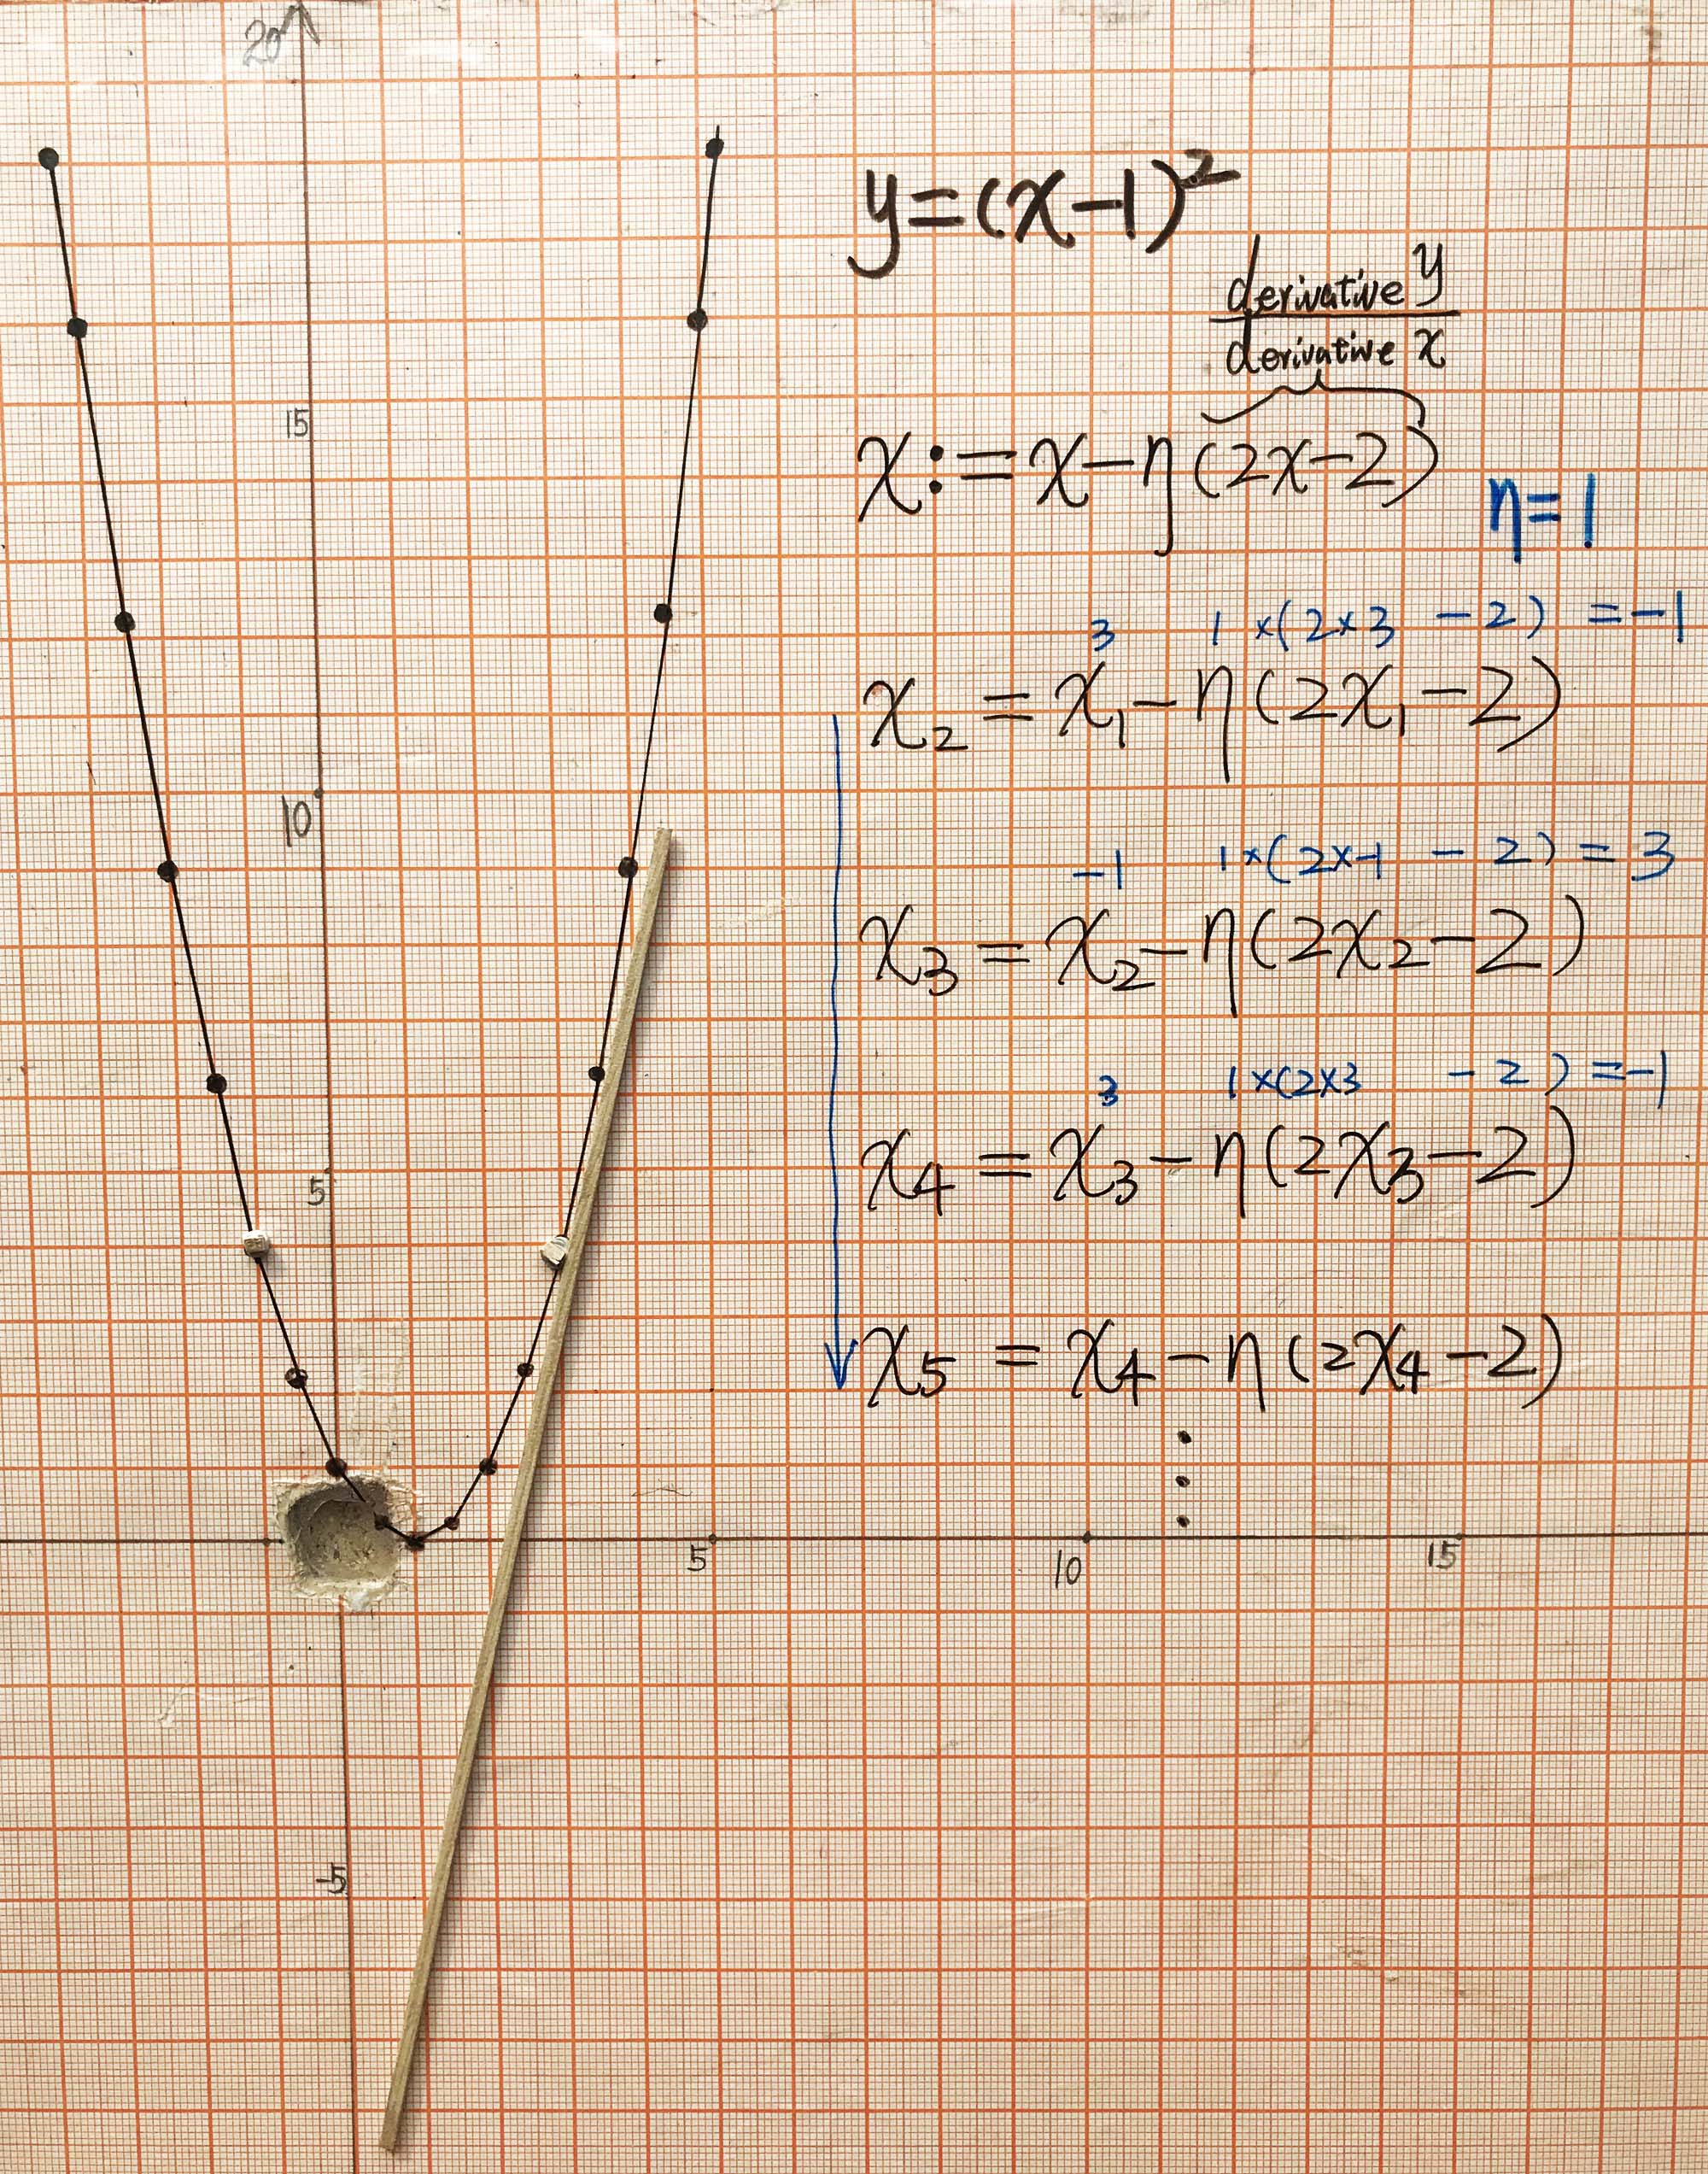 20
15
10
5
5
10
15
-5
y=(x-1)²
derivative y
derivative x
x:=x-η(2x-2)
η=1
3 1×(2×3 -2) =-1
x₂ = x₁-η(2x₁-2)
-1 1×(2×-1 - 2) = 3
x₃ = x₂-η(2x₂-2)
3 1×(2×3 - 2) =-1
x₄ = x₃-η(2x₃-2)
x₅ = x₄-η(2x₄-2)
⋮